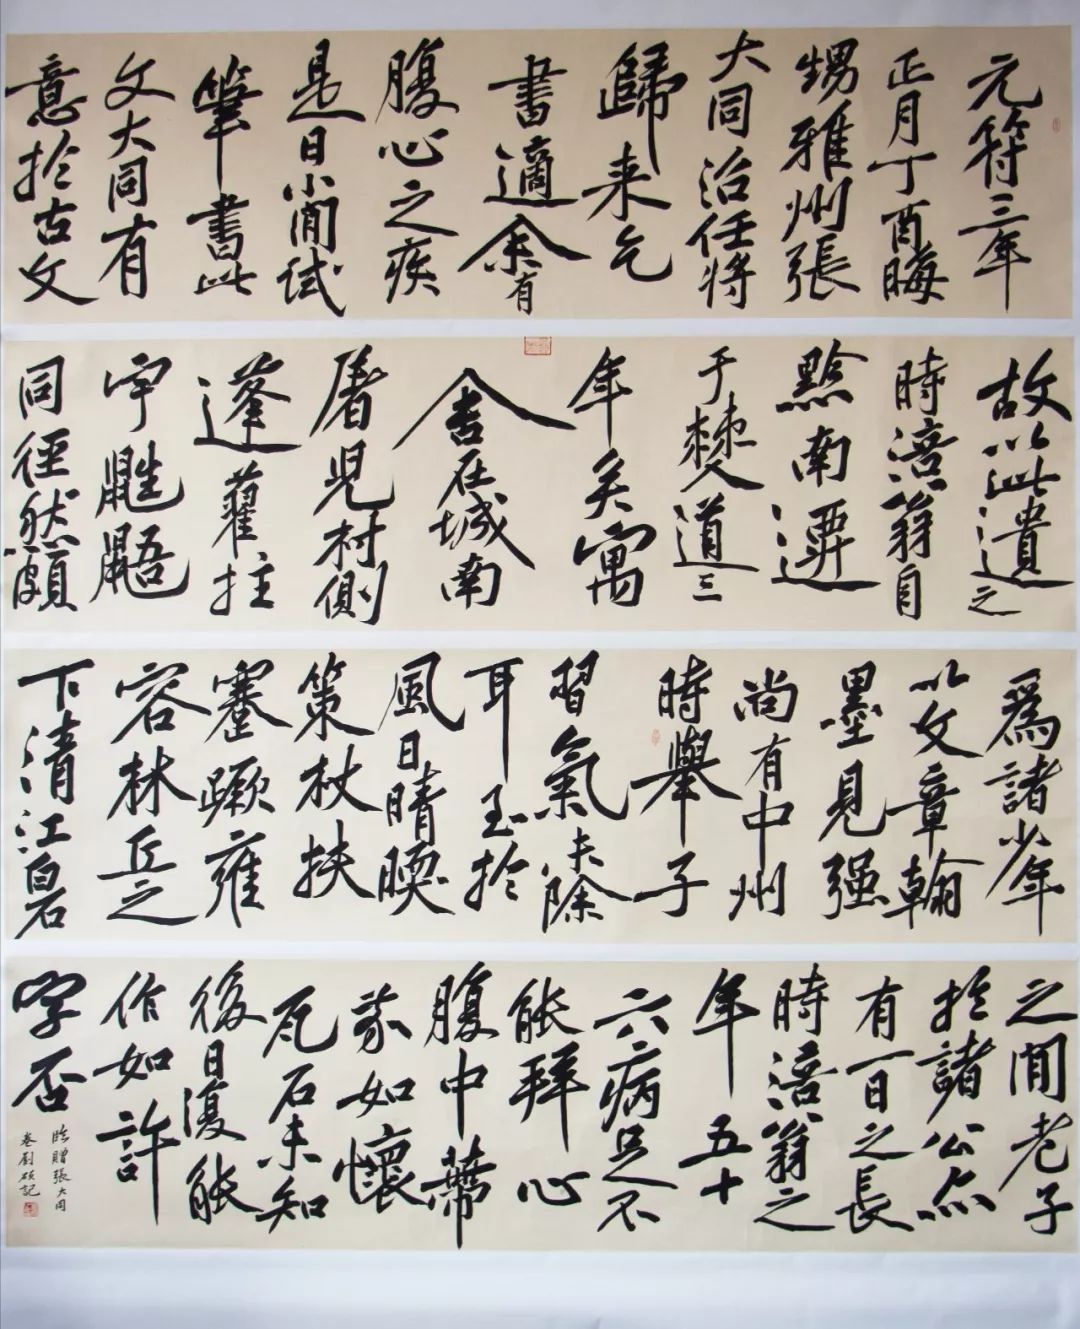 元符三年
正月丁酉晦
甥雅州張
大同治任將
歸来乞
書適余有
腹心之疾
是日小閒試
筆書此
文大同有
意於古文
故以此遺之
時涪翁自
黔南遷
于僰道三
年矣寓
舍在城南
屠児村側
蓬藋拄
宇鼪鼯
同徑然頗
爲諸少年
以文章翰
墨見强
尚有中州
時舉子
習氣未除
耳至於
風日晴暖
策杖扶
蹇蹶雍
容林丘之
下清江白石
之閒老子
於諸公亦
有一日之長
時涪翁之
年五十
六病足不
能拜心
腹中蔕
芥如懷
瓦石未知
後日復能
作如許
字否
臨贈張大同
卷劉碩記